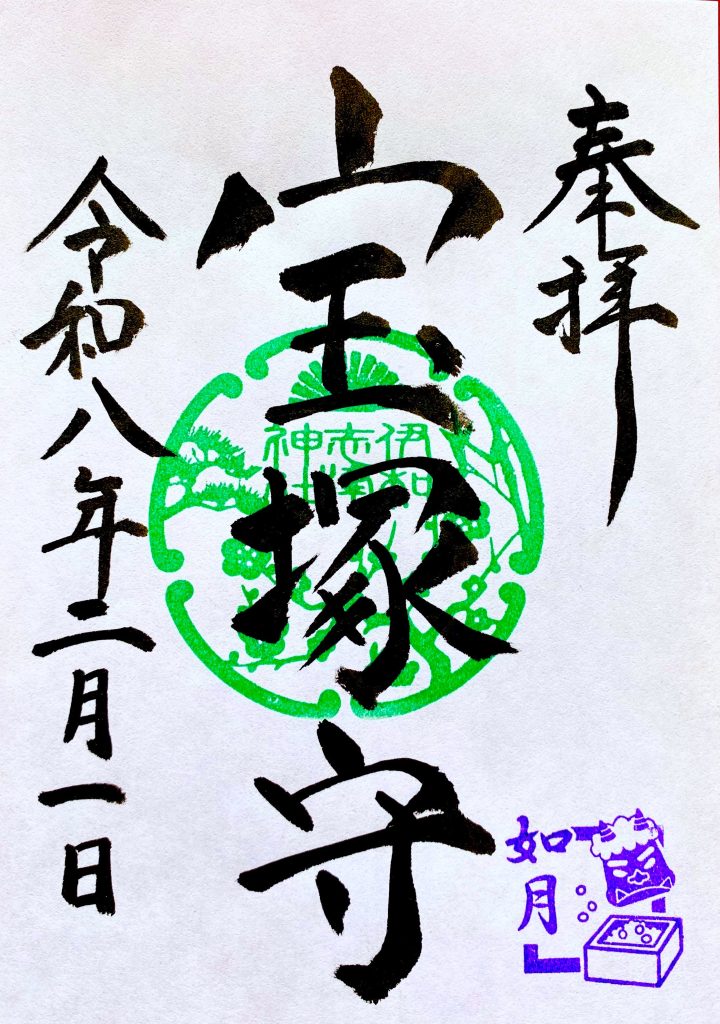 奉拝
宝塚守
伊和
志津
神社
令和八年二月一日
如月